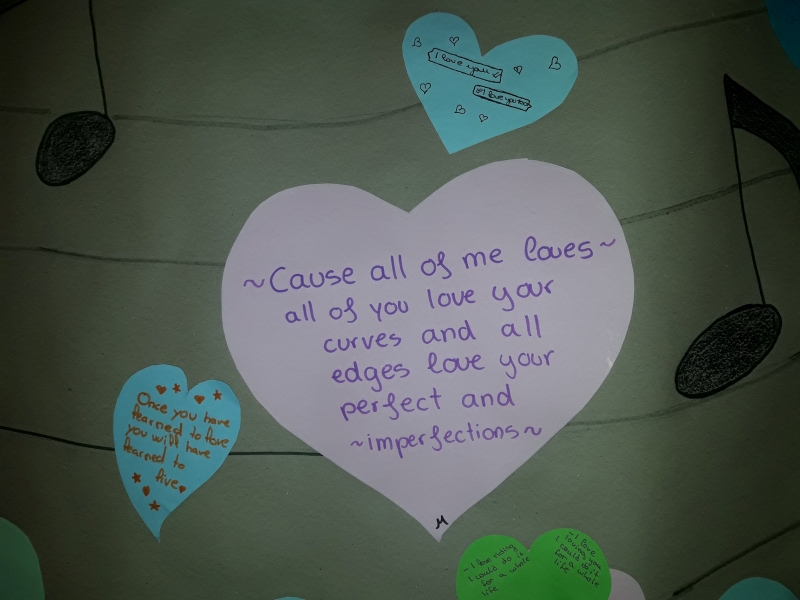 I love you
I love you too
~Cause all of me loves~
all of you love your
curves and all
edges love your
perfect and
~imperfections~
M
Once you have
learned to love
you will have
learned to
live
~I love
I could do it
for a whole
life
~I love
loving you
I could do it
for a whole
life